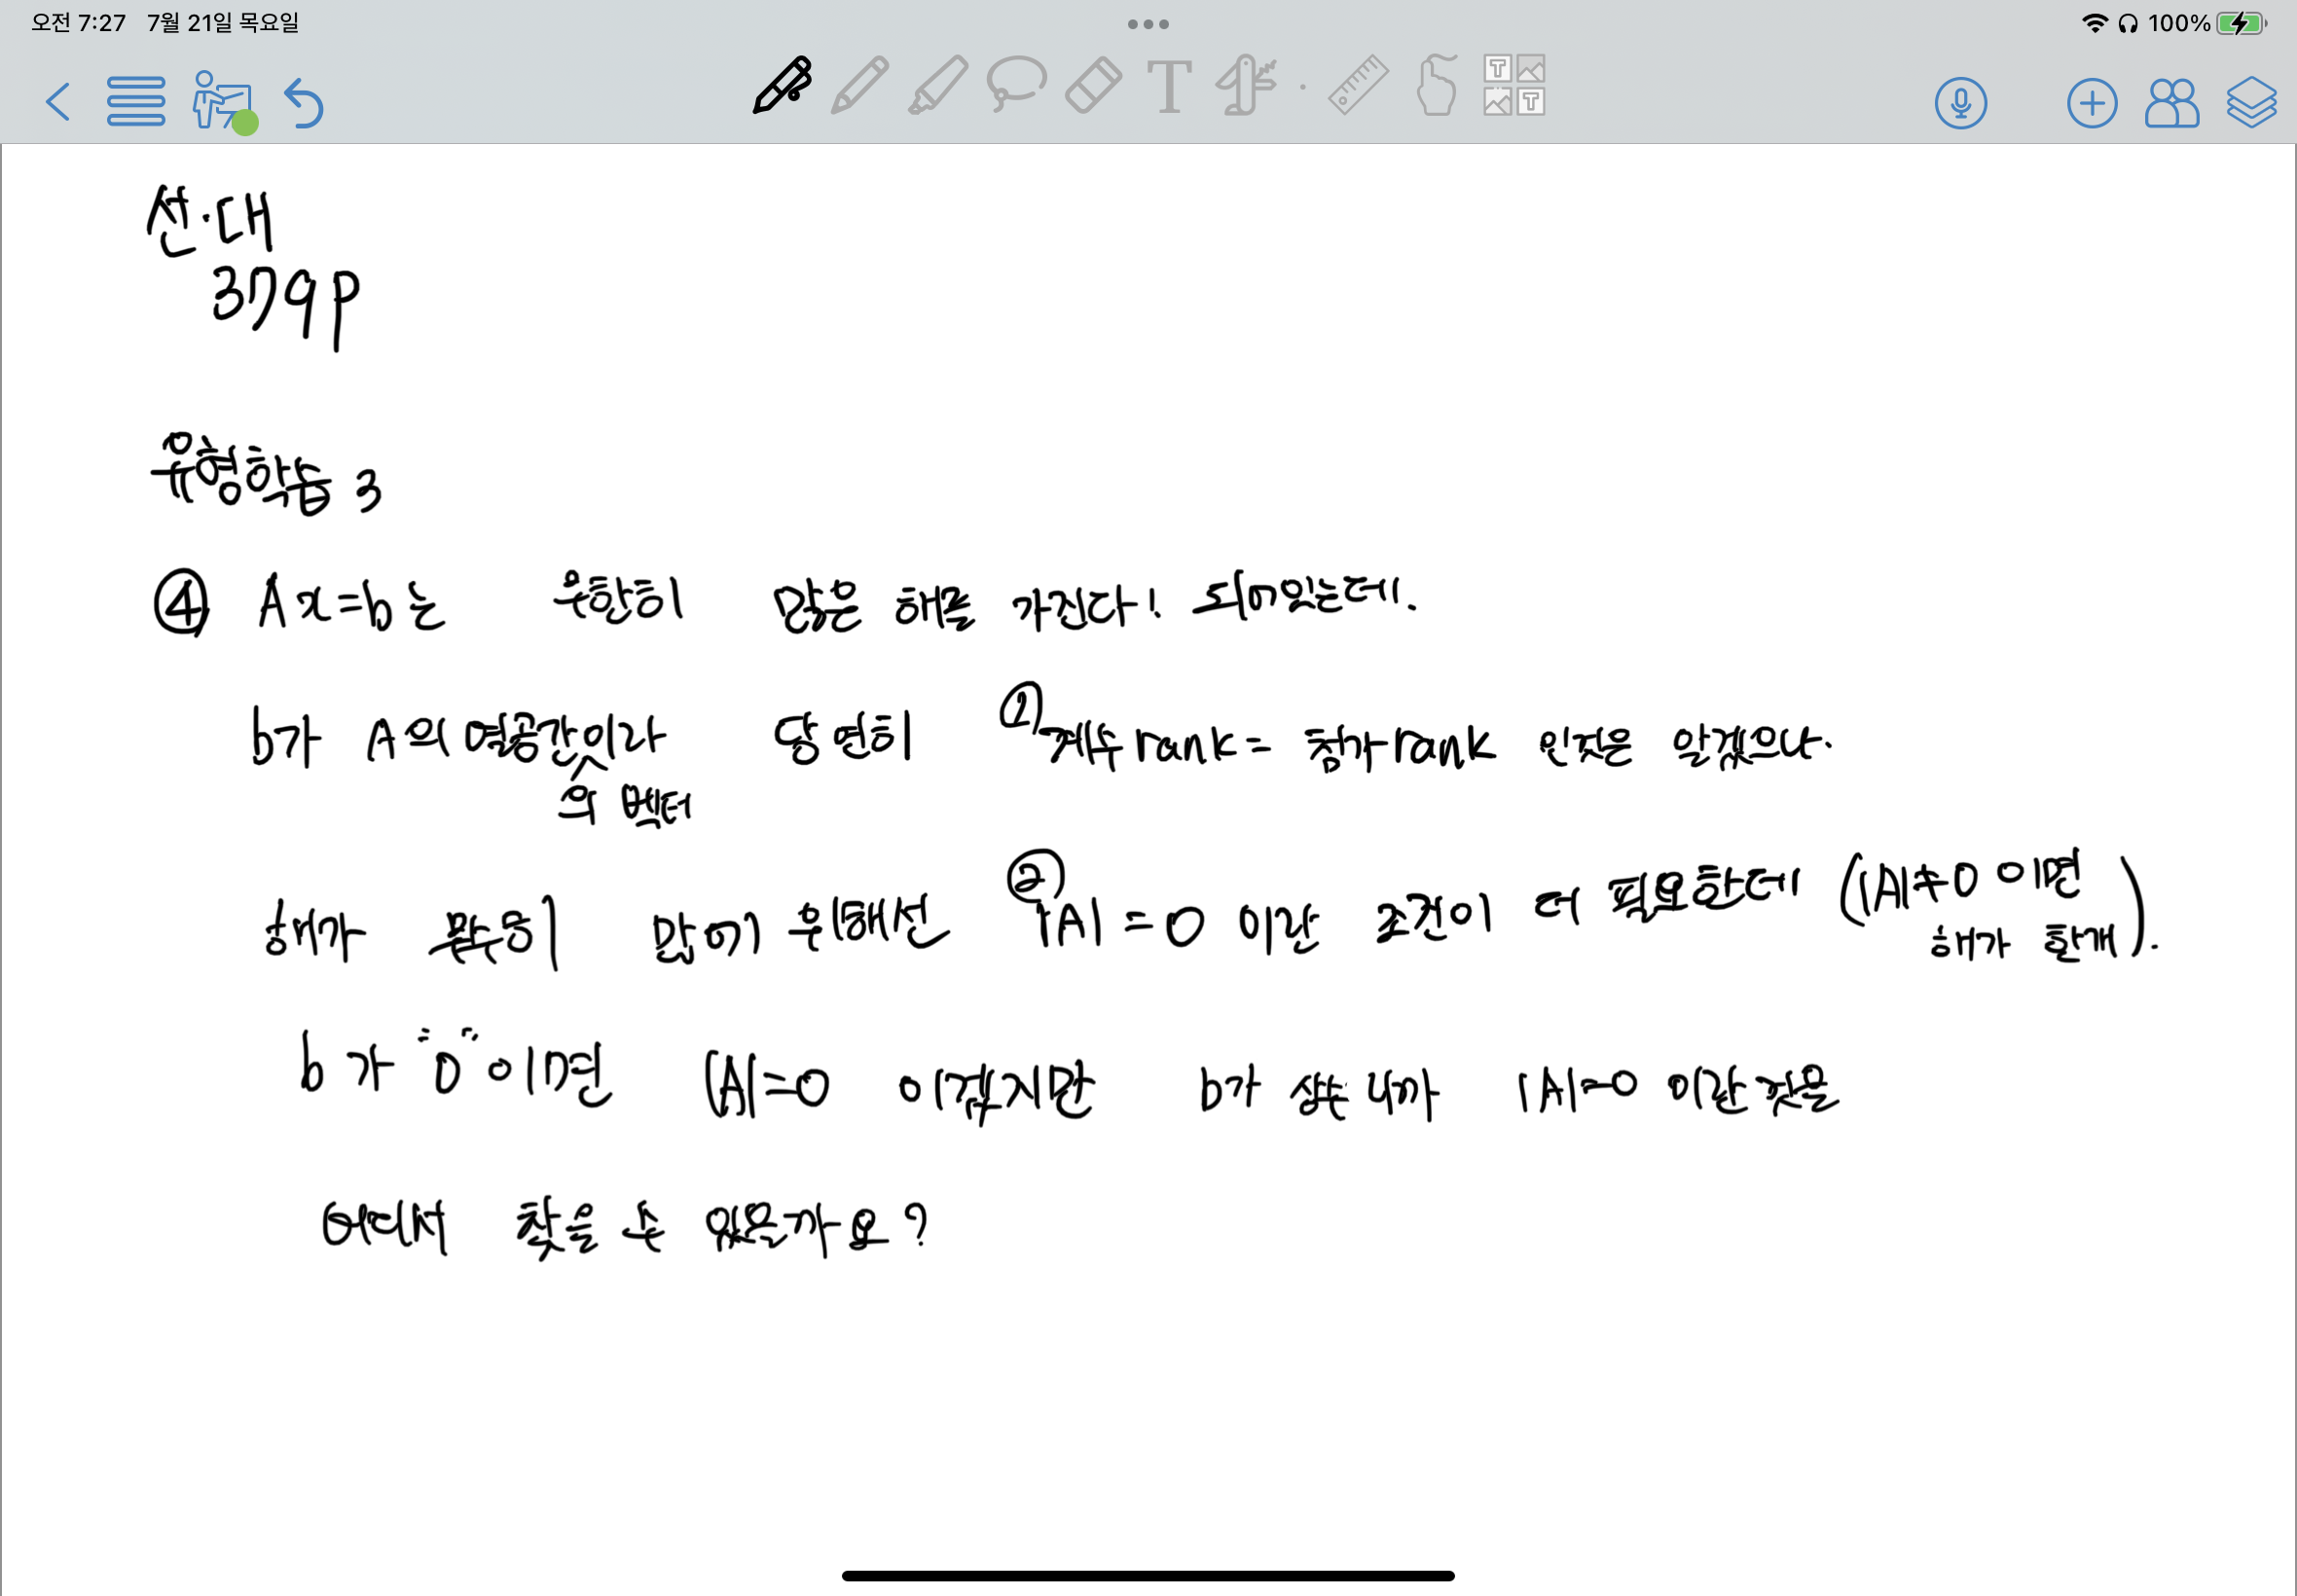 오전 7:27 7월 21일 목요일
100%
선·대
379p
유형학습 3
④ Ax=b는 무한히 많은 해를 가진다! 되어있는데.
b가 A의 열공간이라 당연히 ① 계수rank= 첨가rank 인것은 알겠으나.
의 벡터
해가 무수히 많기 위해선 ② |A| = 0 이란 조건이 더 필요한데 (|A|≠0 이면
해가 한개).
b가 "0"이면 |A|=0 이겠지만 b가 상수니까 |A|=0 이란것을
어디서 찾을 수 있은가요?